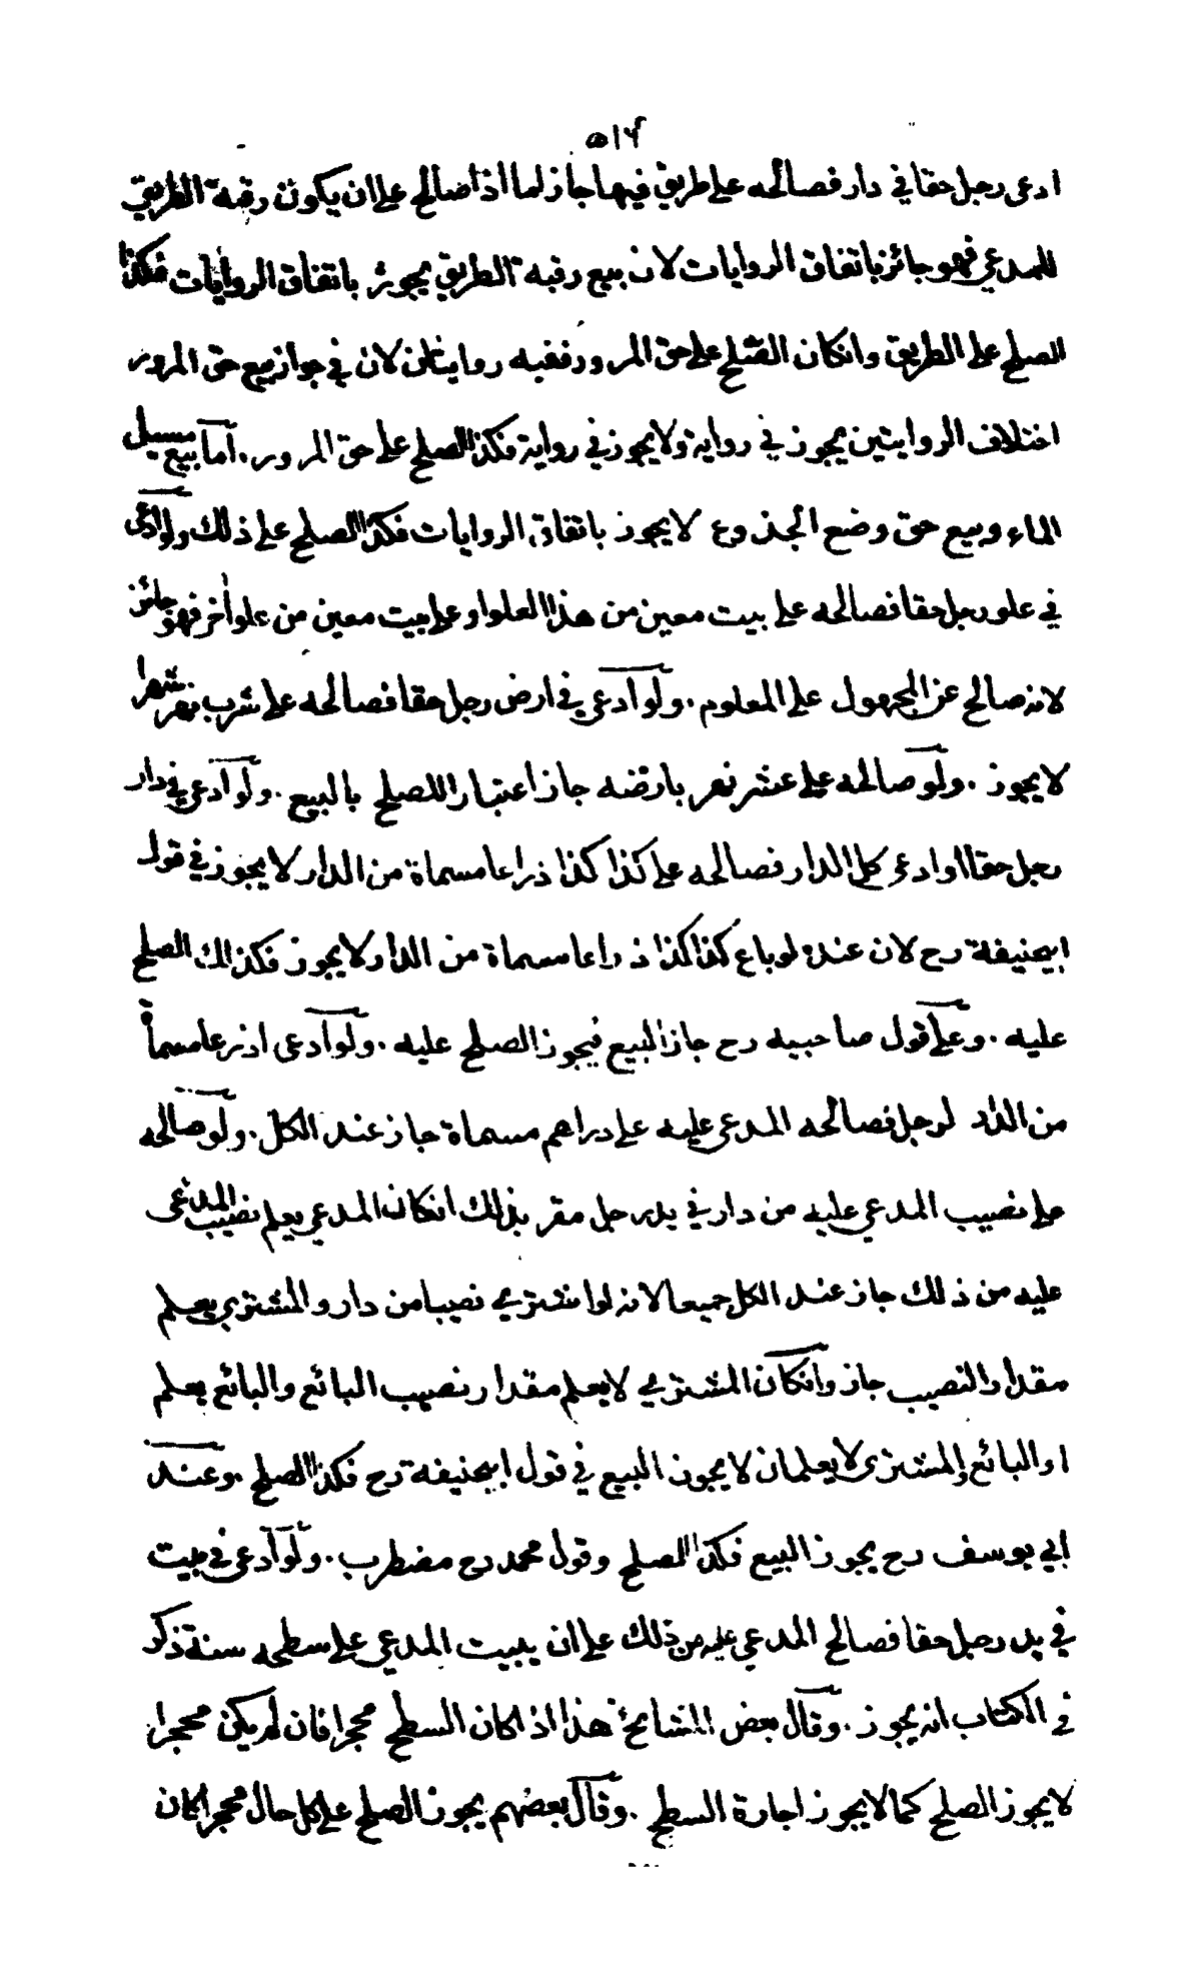 ٥١٦
ادعى رجل حقا في دار فصالحه على طريق فيها جاز اما اذا صالح على ان يكون رقبة الطريق
للمدعي فهو جائز باتفاق الروايات لان بيع رقبة الطريق يجوز باتفاق الروايات فكذا
الصلح على الطريق وانكان الصلح على حق المرور ففيه روايتان لان في جواز بيع حق المرور
اختلاف الروايتين يجوز في رواية ولا يجوز في رواية فكذا الصلح على حق المرور . اما بيع مسيل
الماء وبيع حق وضع الجذوع لا يجوز باتفاق الروايات فكذا الصلح على ذلك ولو ادعى
في علو رجل حقا فصالحه على بيت معين من هذا العلو او على بيت معين من علو اخر فهو جائز
لانه صالح عن المجهول على المعلوم . ولو ادعى في ارض رجل حقا فصالحه على شرب نهر شهرا
لا يجوز . ولو صالحه على عشر نهر بارضه جاز اعتبارا للصلح بالبيع . ولو ادعى في دار
رجل حقا او ادعى كل الدار فصالحه على كذا كذا ذراعا مسماة من الدار لا يجوز في قول
ابيحنيفة رح لان عنده لو باع كذا كذا ذراعا مسماة من الدار لا يجوز فكذلك الصلح
عليه . وعلى قول صاحبيه رح جاز البيع فيجوز الصلح عليه . ولو ادعى اذرعا مسماة
من الدار لرجل فصالحه المدعى عليه على دراهم مسماة جاز عند الكل . ولو صالحه
على نصيب المدعى عليه من دار في يد رجل مقر بذلك انكان المدعي يعلم نصيب المدعى
عليه من ذلك جاز عند الكل جميعا لانه لو اشترى نصيبا من دار والمشتري يعلم
مقدار النصيب جاز وانكان المشتري لا يعلم مقدار نصيب البائع والبائع يعلم
او البائع والمشترى لا يعلمان لا يجوز البيع في قول ابيحنيفة رح فكذا الصلح . وعند
ابي يوسف رح يجوز البيع فكذا الصلح وقول محمد رح مضطرب . ولو ادعى في بيت
في يد رجل حقا فصالح المدعى عليه من ذلك على ان يبيت المدعي على سطحه سنة ذكر
في الكتاب انه يجوز . وقال بعض المشايخ هذا اذا كان السطح محجرا فان لم يكن محجرا
لا يجوز الصلح كما لا يجوز اجارة السطح . وقال بعضهم يجوز الصلح على كل حال محجرا كان